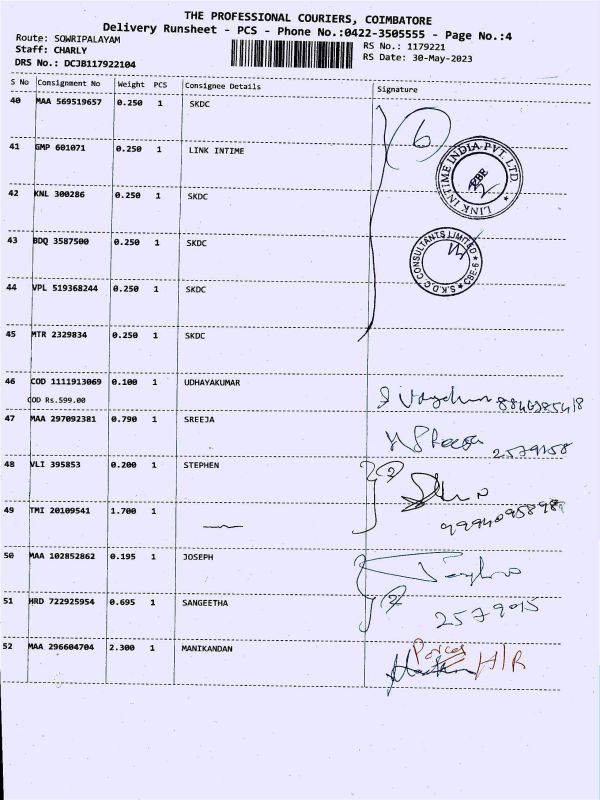 THE PROFESSIONAL COURIERS, COIMBATORE
Delivery Runsheet - PCS - Phone No.:0422-3505555 - Page No.:4
Route: SOWRIPALAYAM
Staff: CHARLY
DRS No.: DCJB117922104
RS No.: 1179221
RS Date: 30-May-2023
S No Consignment No Weight PCS Consignee Details Signature
40 MAA 569519657 0.250 1 SKDC
6
41 GMP 601071 0.250 1 LINK INTIME
LINK INTIME INDIA PVT. LTD.
CBE
42 KNL 300286 0.250 1 SKDC
43 BDQ 3587500 0.250 1 SKDC
S.K.D.C CONSULTANTS LIMITED CBE-6
44 VPL 519368244 0.250 1 SKDC
45 MTR 2329834 0.250 1 SKDC
46 COD 1111913069 0.100 1 UDHAYAKUMAR
COD Rs.599.00
47 MAA 297092381 0.790 1 SREEJA
48 VLI 395853 0.200 1 STEPHEN
2
49 TMI 20109541 1.700 1
50 MAA 102852862 0.195 1 JOSEPH
51 HRD 722925954 0.695 1 SANGEETHA
2
52 MAA 296604704 2.300 1 MANIKANDAN
H/R